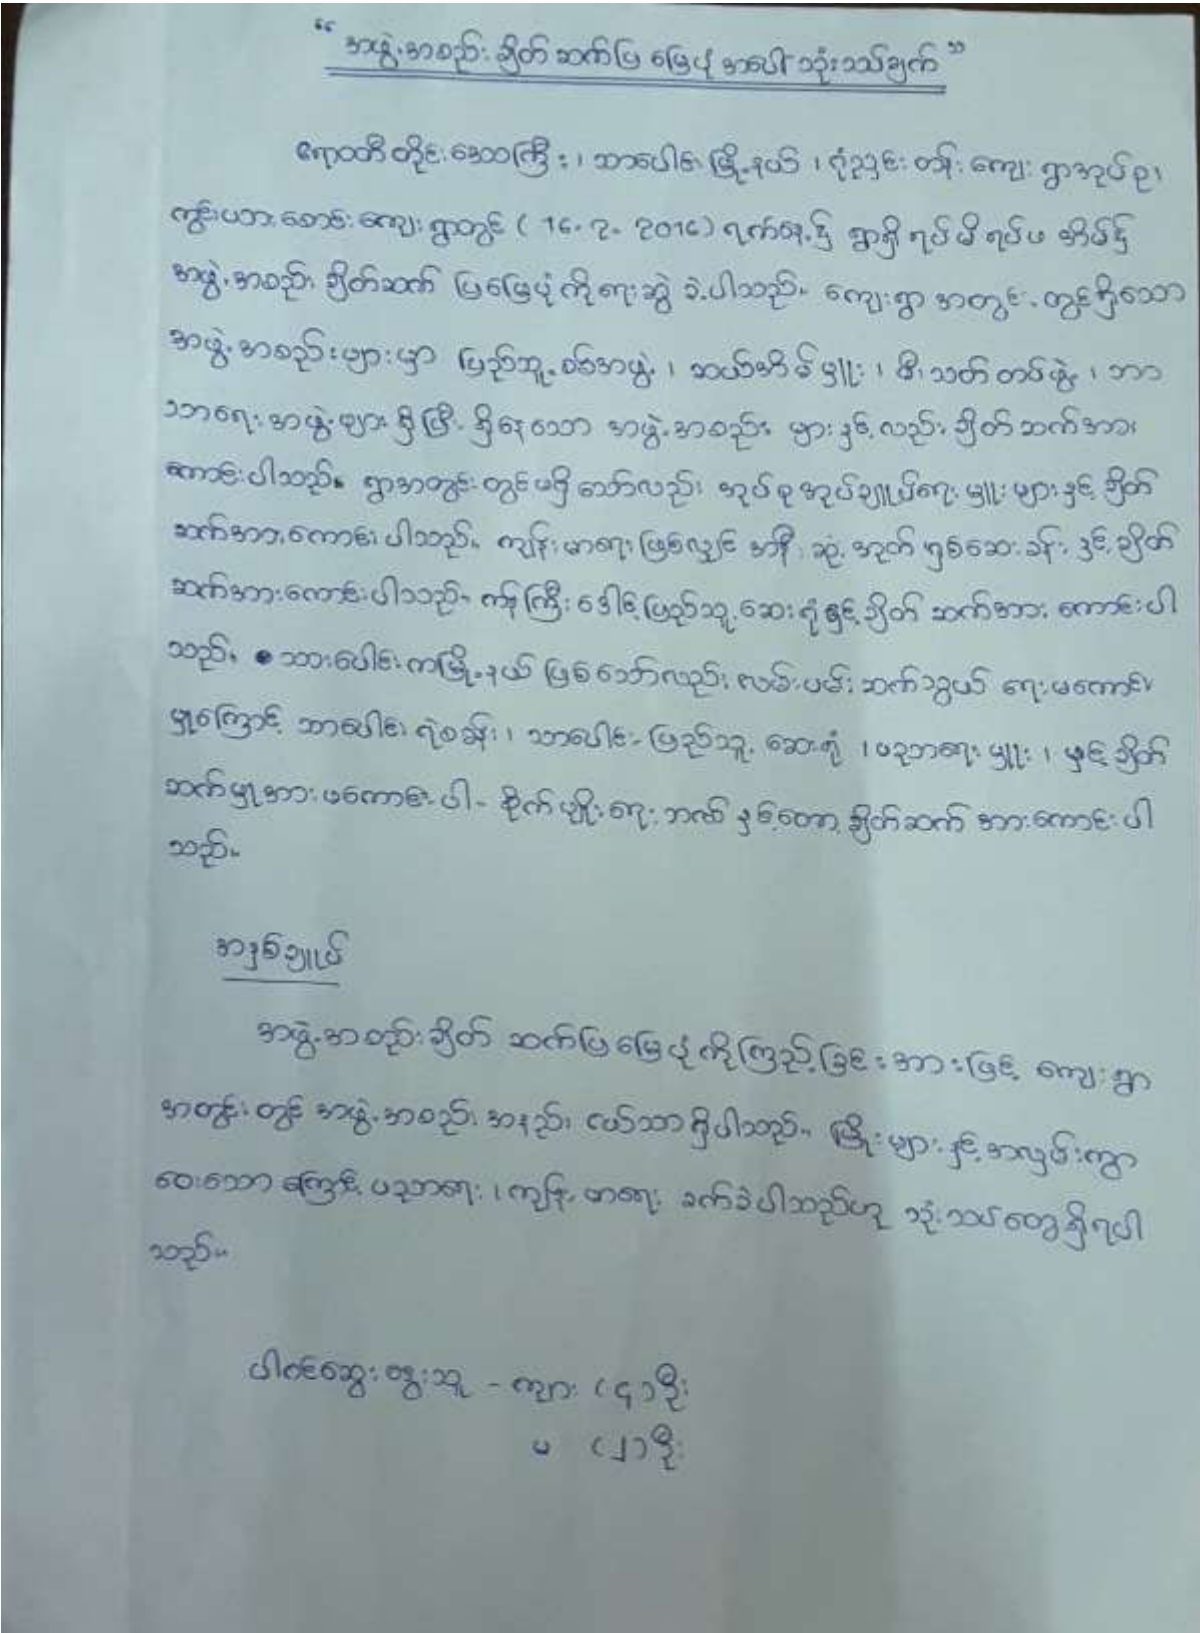 “ အဖွဲ့အစည်းချိတ်ဆက်ပြမြေပုံအပေါ်သုံးသပ်ချက် ”
ဧရာဝတီတိုင်းဒေသကြီး၊ သာပေါင်းမြို့နယ်၊ ကျေးရွာအုပ်စု၊
ကျေးရွာတွင် ( 16. 2. 2016) ရက်နေ့၌ ရွာရှိ ရပ်မိရပ်ဖ အိမ်၌
အဖွဲ့အစည်း ချိတ်ဆက် ပြမြေပုံကိုရေးဆွဲ ခဲ့ပါသည်။ ကျေးရွာ အတွင်းတွင်ရှိသော
အဖွဲ့အစည်းများမှာ ပြည်သူ့စစ်အဖွဲ့၊ ဆယ်အိမ်မှူး၊ မီးသတ်တပ်ဖွဲ့၊ ဘာ
သာရေးအဖွဲ့များ ရှိပြီး ရှိနေသော အဖွဲ့အစည်း များနှင့်လည်း ချိတ်ဆက်အား
ကောင်းပါသည်။ ရွာအတွင်းတွင်မရှိသော်လည်း အုပ်စုအုပ်ချုပ်ရေးမှူးများနှင့် ချိတ်
ဆက်အားကောင်းပါသည်။ ကျန်းမာရေးဖြစ်လျှင် အနီးဆုံး အုတ်ရှစ်ဆေးခန်းနှင့် ချိတ်
ဆက်အားကောင်းပါသည်။ ကန်ကြီးဒေါင့်ပြည်သူ့ဆေးရုံနှင့်ချိတ် ဆက်အား ကောင်းပါ
သည်။ သာပေါင်းကမြို့နယ် ဖြစ်သော်လည်း လမ်းပမ်းဆက်သွယ် ရေးမကောင်း
မှုကြောင့် သာပေါင်းရဲစခန်း၊ သာပေါင်းပြည်သူ့ ဆေးရုံ ၊ ပညာရေးမှူး၊ မှင့်ချိတ်
ဆက်မှုအားမကောင်းပါ - စိုက်ပျိုးရေးဘဏ် နှင့်တော့ ချိတ်ဆက် အားကောင်းပါ
သည်။
အနှစ်ချုပ်
အဖွဲ့အစည်းချိတ် ဆက်ပြမြေပုံကိုကြည့်ခြင်းအားဖြင့် ကျေးရွာ
အတွင်းတွင် အဖွဲ့အစည်း အနည်း ငယ်သာရှိပါသည်။ မြို့များနှင့်အလှမ်းကွာ
ဝေးသောကြောင့် ပညာရေး၊ ကျန်းမာရေး ခက်ခဲပါသည်ဟု သုံးသပ်တွေ့ရှိရပါ
သည်။
ပါဝင်ဆွေးနွေးသူ - ကျား (၄)ဦး
မ (၂)ဦး